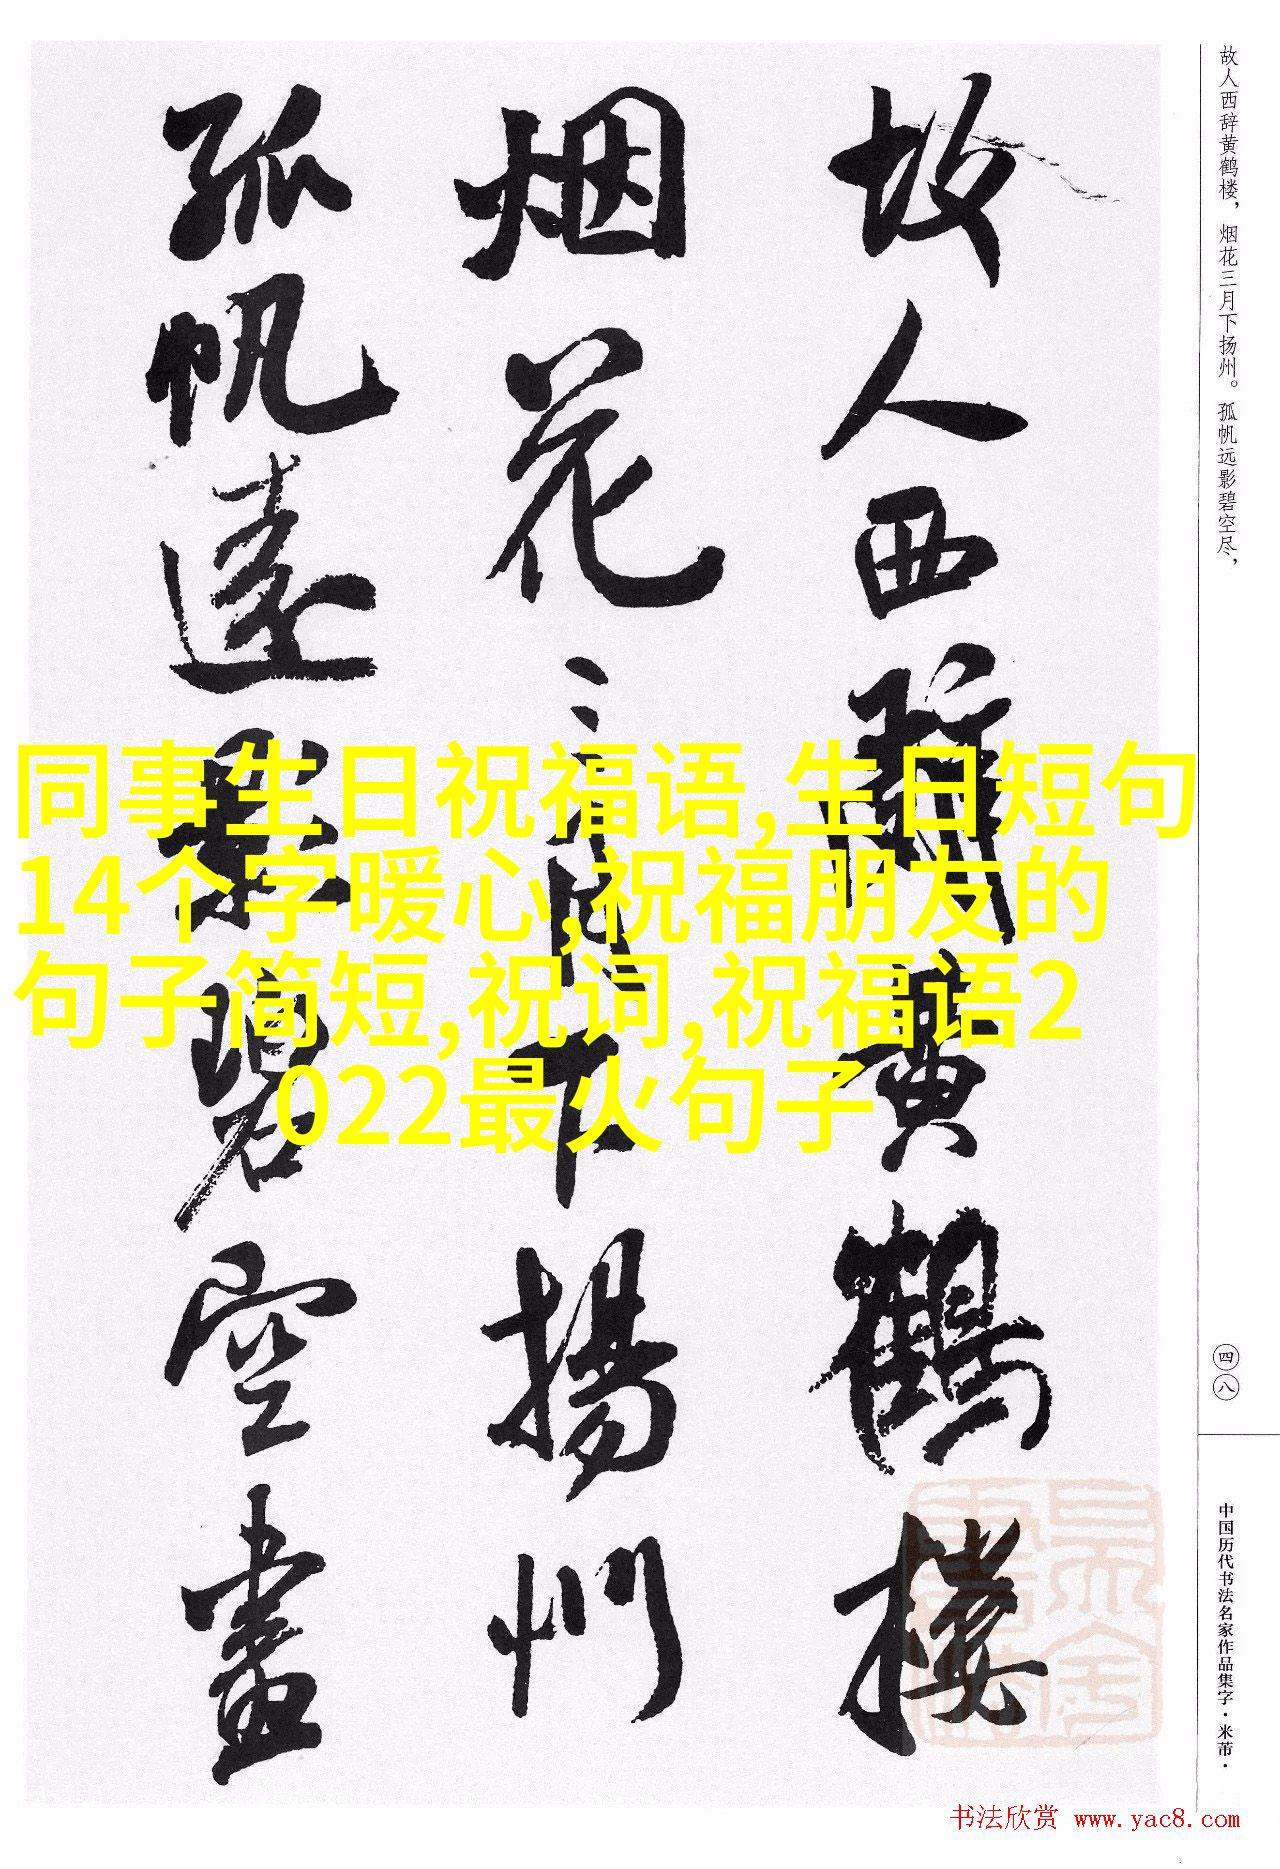 故人西辞黄鹤楼，烟花三月下扬州。孤帆远影碧空尽，
故人西辭黄鹤楼
烟花三月下揚州
孤帆遠影碧空盡
同事生日祝福语,生日短句
14个字暖心,祝福朋友的
句子简短,祝词,祝福语2
022最火句子
四八
中国历代书法名家作品集字·米芾·
书法欣赏 www.yac8.com